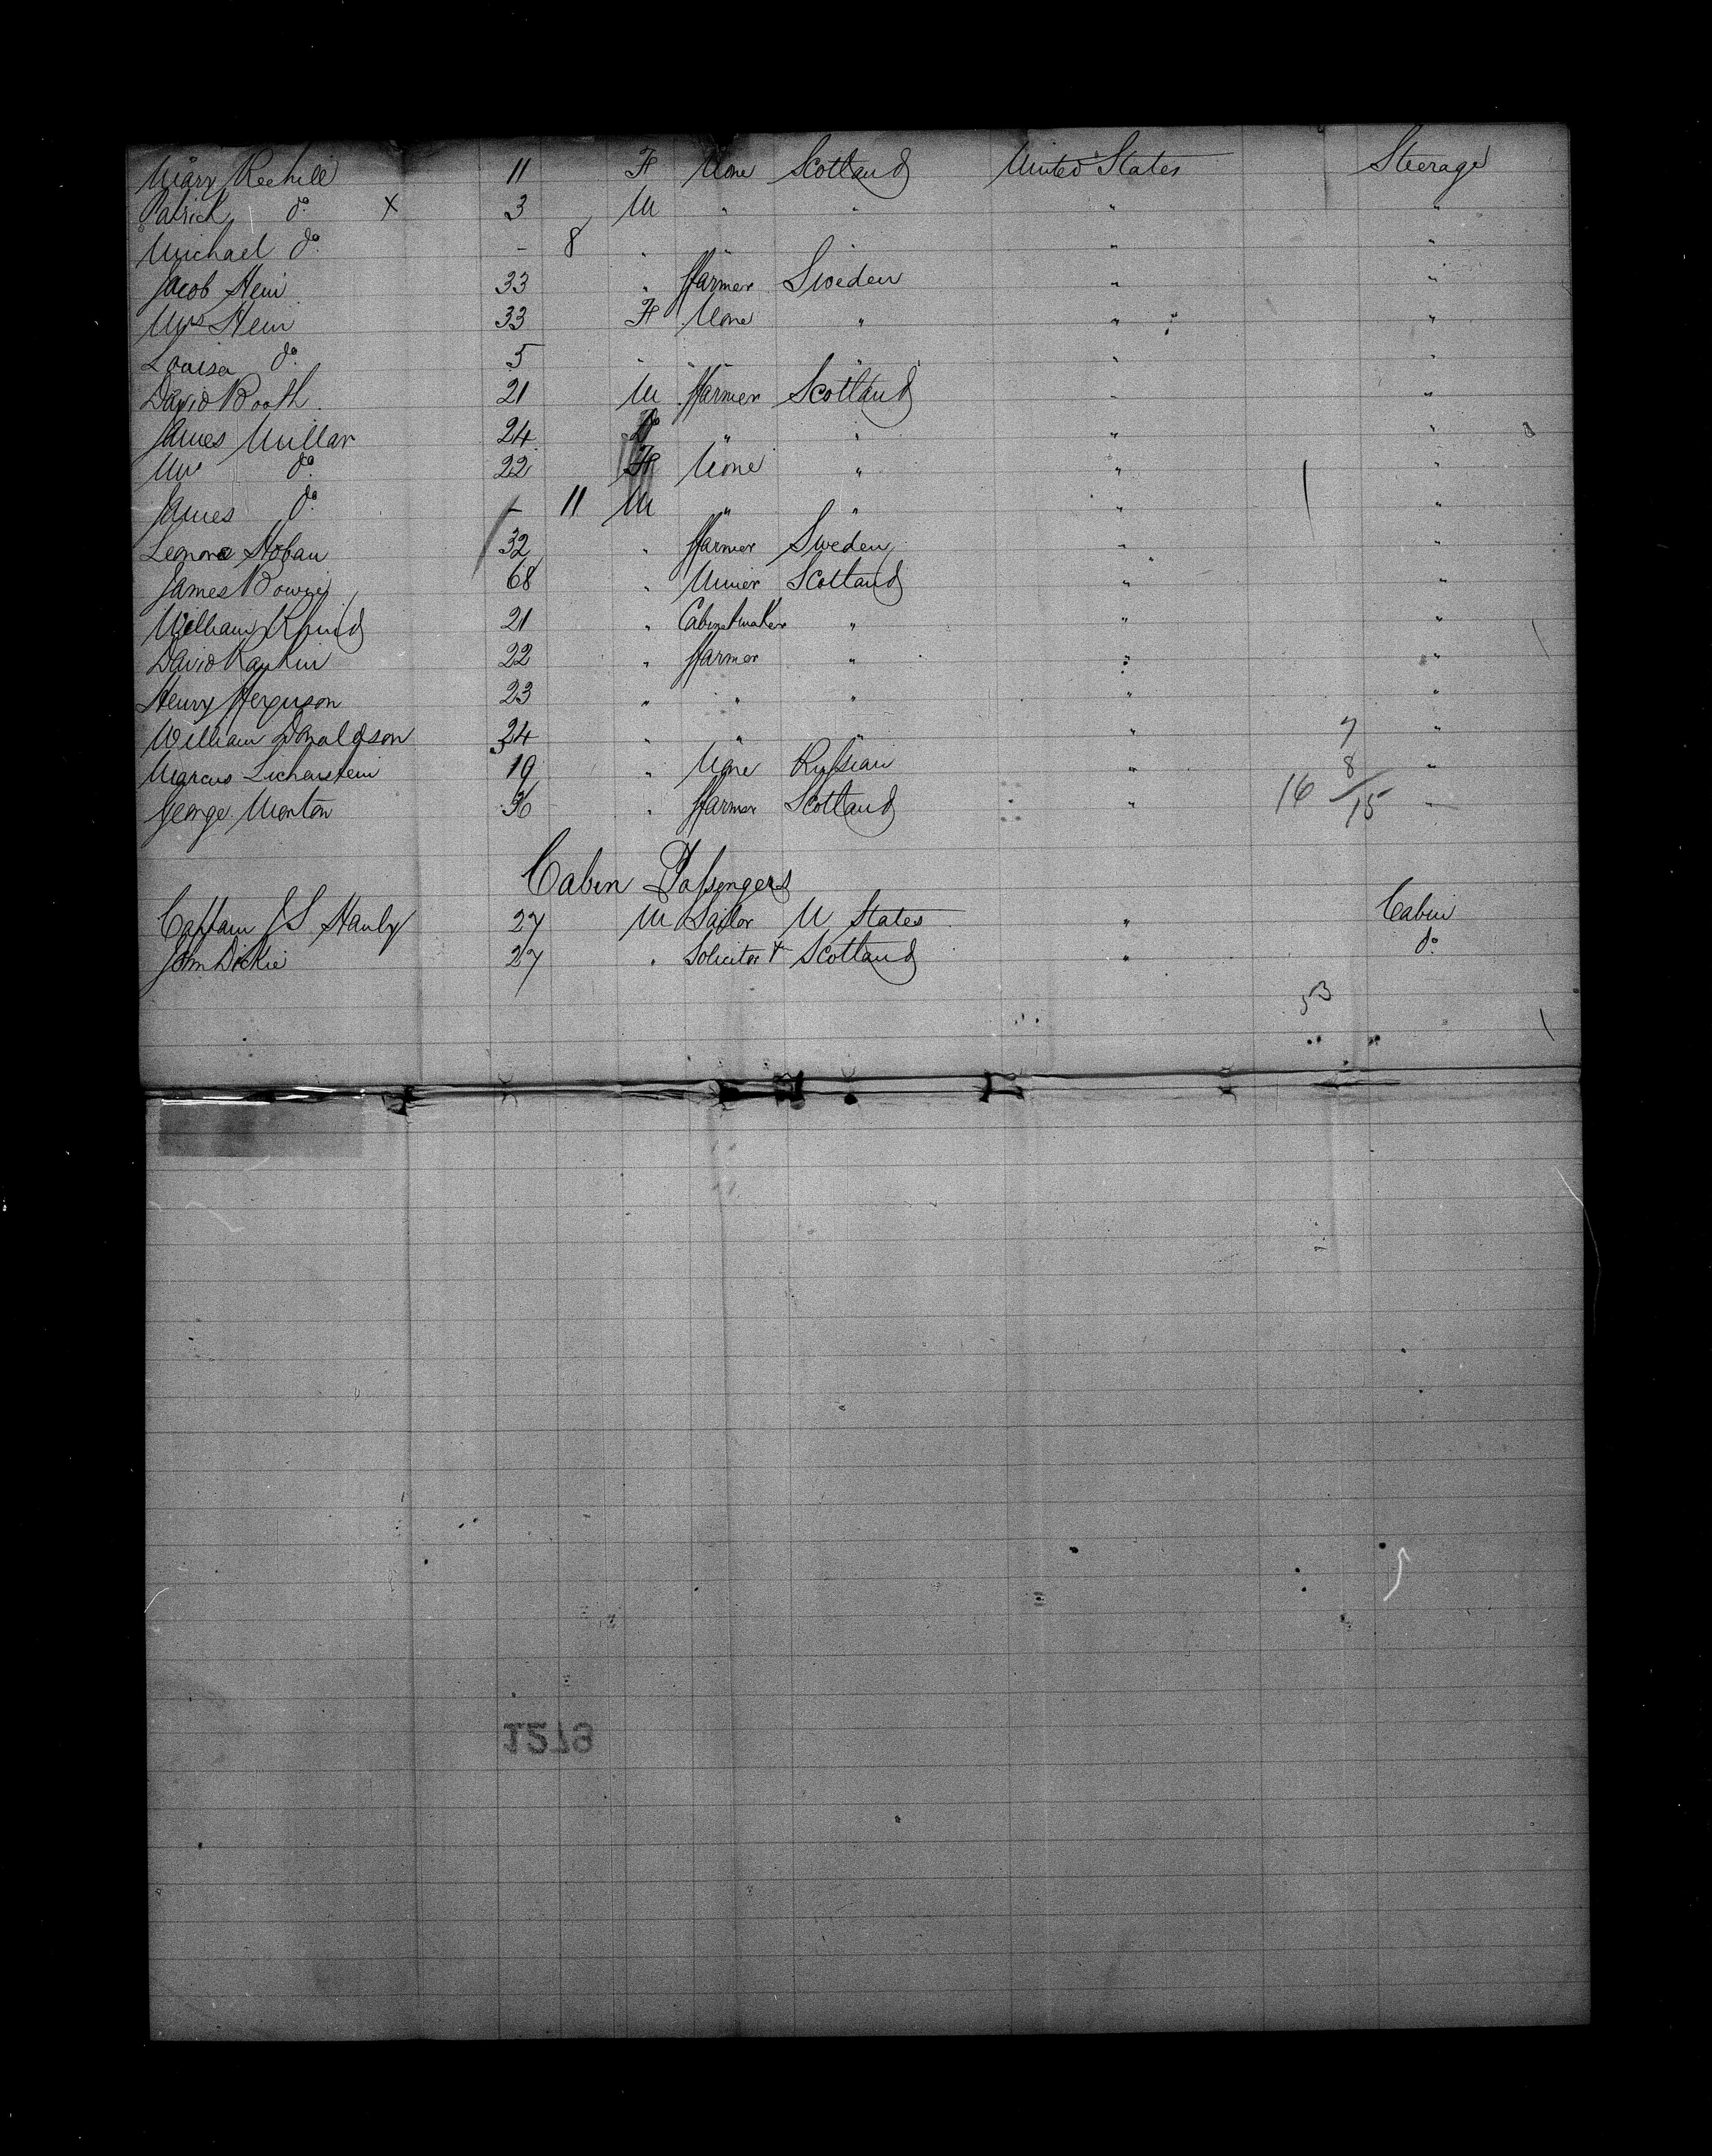 Mary Reehill 11 F None Scotland United States Steerage
Patrick do X 3 M " " " "
Michael do - 8 " " " " "
Jacob Hein 33 " Farmer Sweden " "
Mrs Hein 33 F None " " "
Louisa do 5 " " " " "
David Booth 21 M Farmer Scotland " "
James Millar 24 Do " " " "
Mrs do 22 F None " " "
James do - 11 M " " " "
Leonora Hoban 32 " Farmer Sweden " "
James Bowie 68 " Miner Scotland " "
William 21 " Cabinetmaker " " "
David Rankin 22 " Farmer " " "
Henry Ferguson 23 " " " " "
William Donaldson 24 " " " " 7 "
Marcus Lichenstein 19 " None Russian " 8 "
George Morton 36 " Farmer Scotland " 16 15 "
Cabin Passengers
Captain J S Hanly 27 M Sailor U States " Cabin
John Dickie 27 " Solicitor + Scotland " do
53
1279